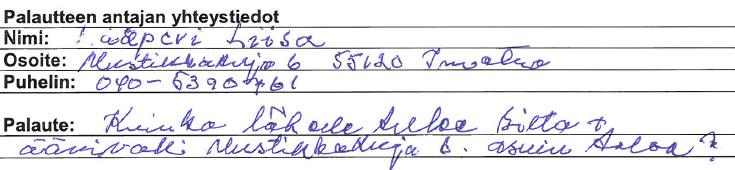 Palautteen antajan yhteystiedot
Nimi: Liisa
Osoite: Mustikkakuja 6 55120 Imatra
Puhelin: 040-5390761
Palaute: Kuinka lähelle tulee silta +
äänivalli Mustikkakuja 6. asuin aluetta?